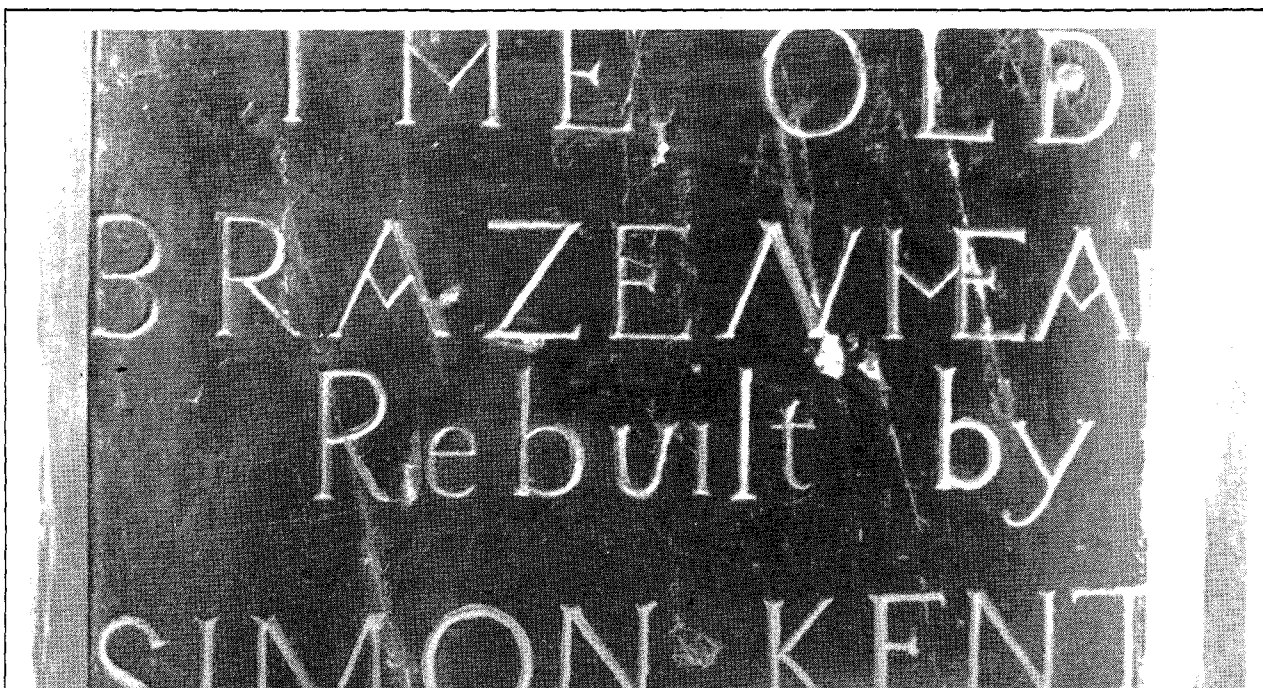 THE OLD
BRAZENHEA
Rebuilt by
SIMON KENT